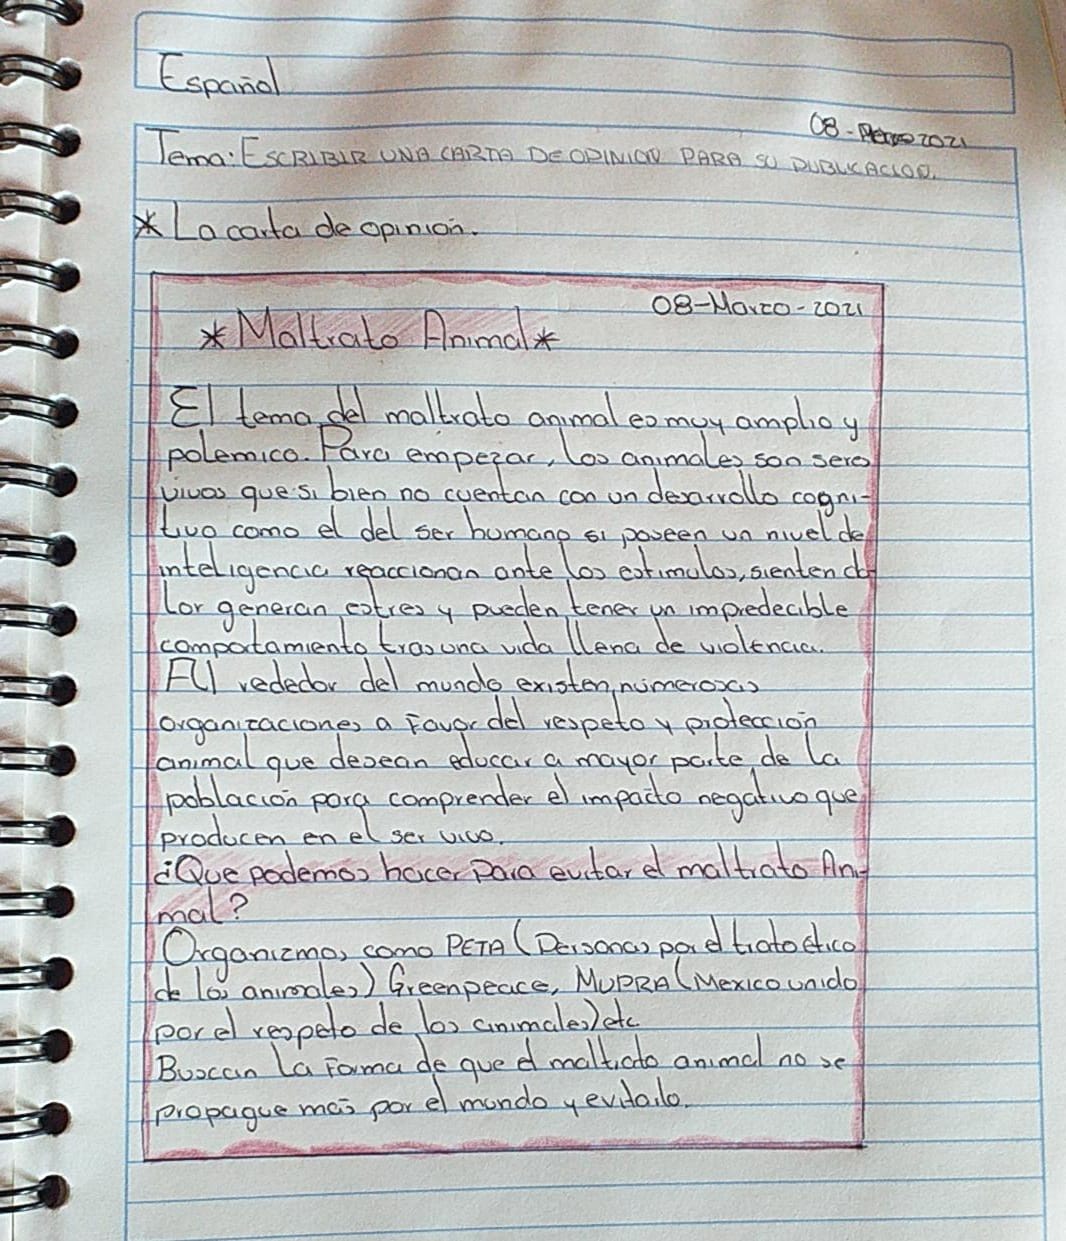 Español
08-Marzo 2021
Tema: ESCRIBIR UNA CARTA DE OPINION PARA SU PUBLICACION.
* La carta de opinión.
08-Marzo-2021
*Maltrato Animal*
El tema del maltrato animal es muy amplio y
polemico. Para empezar, los animales son seres
vivos que si bien no cuentan con un desarrollo cogni-
tivo como el del ser humano si poseen un nivel de
inteligencia reaccionan ante los estimulos, sienten do-
lor generan estres y pueden tener un impredecible
comportamiento tras una vida llena de violencia.
All rededor del mundo existen numerosas
organizaciones a Favor del respeto y protección
animal que desean educar a mayor parte de la
población para comprender el impacto negativo que
producen en el ser vivo.
¿Que podemos hacer para evitar el maltrato Ani-
mal?
Organizmos como PETA (Personas por el trato ético
de los animales) Greenpeace, MUPRA (Mexico unido
por el respeto de los animales) etc
Buscan la Forma de que el maltrato animal no se
propague más por el mundo y evitarlo.